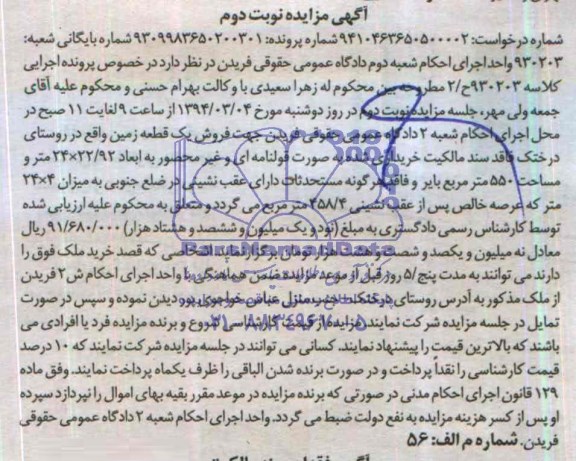 آگهی مزایده نوبت دوم
شماره درخواست: ۹۴۱۰۴۶۳۶۵۰۵۰۰۰۰۲ شماره پرونده: ۹۳۰۹۹۸۳۶۵۰۲۰۰۳۰۱ شماره بایگانی شعبه:
۹۳۰۲۰۳ واحد اجرای احکام شعبه دوم دادگاه عمومی حقوقی فریدن در نظر دارد در خصوص پرونده اجرایی
کلاسه ۹۳۰۲۰۳ح/۲ مطروحه بین محکوم له زهرا سعیدی با وکالت بهرام حسنی و محکوم علیه آقای
جمعه ولی مهر، جلسه مزایده نوبت دوم در روز دوشنبه مورخ ۱۳۹۴/۰۳/۰۴ از ساعت ۹ لغایت ۱۱ صبح در
محل اجرای احکام شعبه ۲ دادگاه عمومی حقوقی فریدن جهت فروش یک قطعه زمین واقع در روستای
درختک فاقد سند مالکیت خریداری شده به صورت قولنامه ای و غیر محصور به ابعاد ۲۲/۹۲×۲۴ متر و
مساحت ۵۵۰ متر مربع بایر و فاقد هر گونه مستحدثات دارای عقب نشینی در ضلع جنوبی به میزان ۴×۲۴
متر که عرصه خالص پس از عقب نشینی ۴۵۸/۴ متر مربع می گردد و متعلق به محکوم علیه ارزیابی شده
توسط کارشناس رسمی دادگستری به مبلغ (نود و یک میلیون و ششصد و هشتاد هزار) ۹۱/۶۸۰/۰۰۰ ریال
معادل نه میلیون و یکصد و شصت و هشت هزار تومان برگزار نماید اشخاصی که قصد خرید ملک فوق را
دارند می توانند به مدت پنج/۵ روز قبل از موعد مزایده ضمن هماهنگی با واحد اجرای احکام ش ۲ فریدن
از ملک مذکور به آدرس روستای درختک - جنب منزل عباس خواجوی پور دیدن نموده و سپس در صورت
تمایل در جلسه مزایده شرکت نمایند مزایده از قیمت کارشناسی شروع و برنده مزایده فرد یا افرادی می
باشند که بالاترین قیمت را پیشنهاد نمایند. کسانی می توانند در جلسه مزایده شرکت نمایند که ۱۰ درصد
قیمت کارشناسی را نقداً پرداخت و در صورت برنده شدن الباقی را ظرف یکماه پرداخت نمایند. وفق ماده
۱۲۹ قانون اجرای احکام مدنی در صورتی که برنده مزایده در موعد مقرر بقیه بهای اموال را نپردازد سپرده
او پس از کسر هزینه مزایده به نفع دولت ضبط می گردد. واحد اجرای احکام شعبه ۲ دادگاه عمومی حقوقی
فریدن. شماره م الف: ۵۶
ParsNamadData